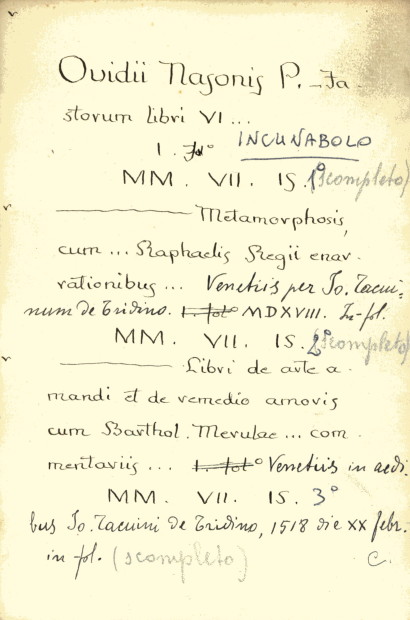 Ovidii Nasonis P. - Fa-
storum libri VI ...
I. Fol° INCUNABOLO
MM. VII. IS. 1° (scompleto)
Metamorphosis,
cum ... Raphaelis Regii enar-
rationibus ... Venetiis per Jo. Tacui-
num de Tridino. I. fol° MDXVIII. In-fol.
MM. VII. IS. 2° (scompleto)
Libri de arte a-
mandi et de remedio amoris
cum Barthol. Merulae ... com-
mentariis ... I. fol° Venetiis in aedi-
MM. VII. IS. 3°
bus Jo. Tacuini de Tridino, 1518 die XX febr.
in fol. (scompleto) C.